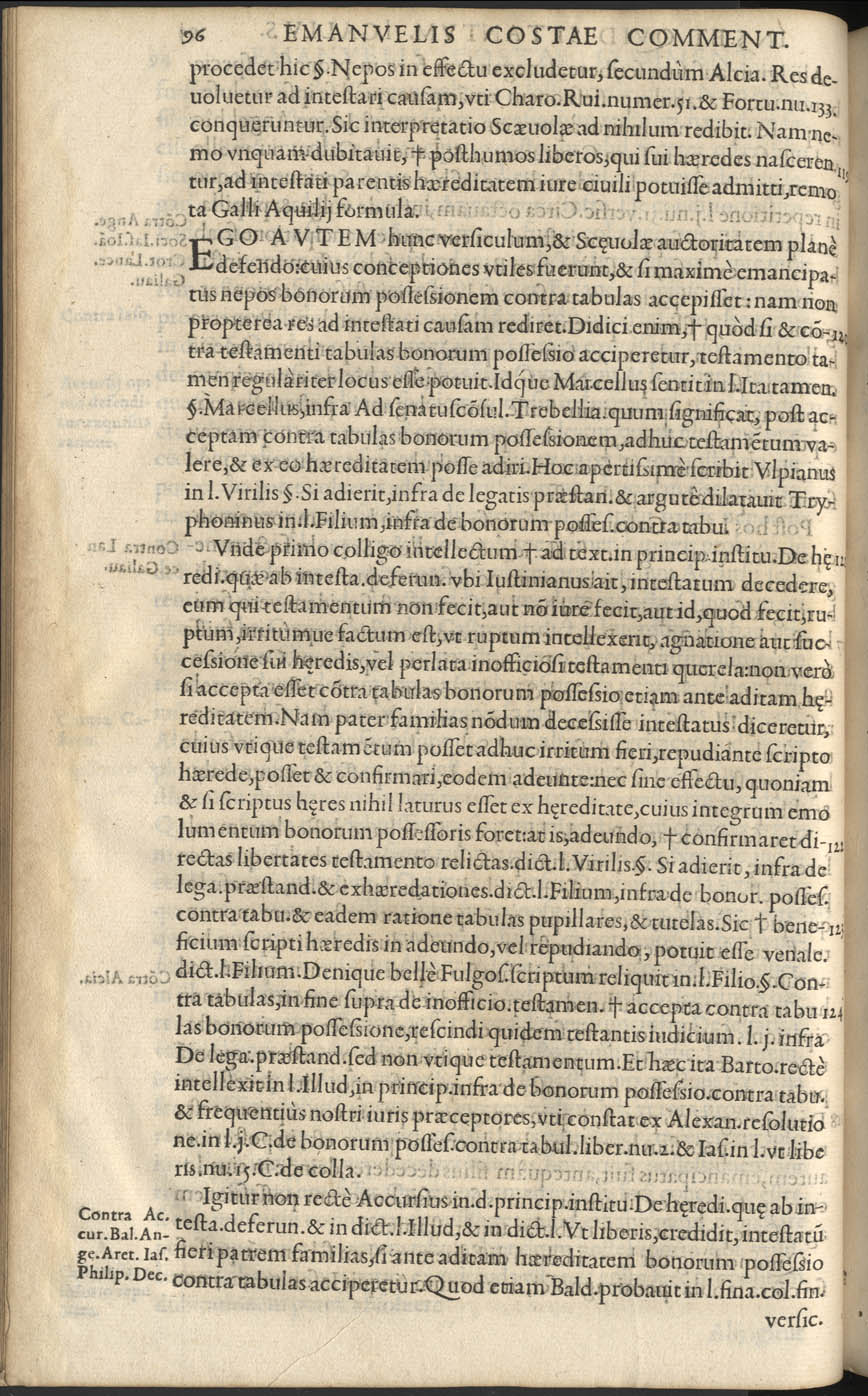 96 EMANVELIS COSTAE COMMENT.
procedet hic §. Nepos in effectu excludetur, ſecundùm Alcia. Res de-
uoluetur ad inteſtari cauſam, vti Charo. Rui. numer. 51. & Fortu. nu. 133.
conqueruntur. Sic interpretatio Scæuolæ ad nihilum redibit. Nam ne-
mo vnquam dubitauit, † poſthumos liberos, qui ſui hæredes naſceren
tur, ad inteſtati parentis hæreditatem iure ciuili potuiſſe admitti, remo
ta Galli Aquilij formula.
EGO AVTEM hunc verſiculum, & Scęuolæ auctoritatem planè
defendo: cuius conceptiones vtiles fuerunt, & ſi maximè emancipa-
tus nepos bonorum poſſeſsionem contra tabulas accepiſſet: nam non
propterea res ad inteſtati cauſam rediret. Didici enim, † quòd ſi & cõ-
tra teſtamenti tabulas bonorum poſſeſsio acciperetur, teſtamento ta-
men regulàriter locus eſſe potuit. Idq́ue Marcellus ſentit in l. Ita tamen.
§. Marcellus, infra Ad ſenatuſcõſul. Trebellia. quum ſignificat, poſt ac-
ceptam contra tabulas bonorum poſſeſsionem, adhuc teſtamẽtum va-
lere, & ex eo hæreditatem poſſe adiri. Hoc apertiſsimè ſcribit Vlpianus
in l. Virilis §. Si adierit, infra de legatis præſtan. & argutè dilatauit Try-
phoninus in. l. Filium, infra de bonorum poſſeſ. contra tabu.
Vnde primo colligo intellectum † ad text. in princip. inſtitu. De hę
redi. quæ ab inteſta. deferun. vbi Iuſtinianus ait, inteſtatum decedere,
eum qui teſtamentum non fecit, aut nõ iure fecit, aut id, quod fecit, ru-
ptum, irritùmue factum eſt, vt ruptum intellexerit, agnatione aut ſuc-
ceſsione ſui hęredis, vel perlata inofficioſi teſtamenti querela: non verò
ſi accepta eſſet cõtra tabulas bonorum poſſeſsio etiam ante aditam hę-
reditatem. Nam pater familias nõdum deceſsiſſe inteſtatus diceretur,
cuius vtique teſtamẽtum poſſet adhuc irritum fieri, repudiante ſcripto
hærede, poſſet & confirmari, eodem adeunte: nec ſine effectu, quoniam
& ſi ſcriptus hęres nihil laturus eſſet ex hęreditate, cuius integrum emo
lumentum bonorum poſſeſſoris foret: at is, adeundo, † confirmaret di-
rectas libertates teſtamento relictas. dict. l. Virilis. §. Si adierit, infra de
lega. præſtand. & exhæredationes. dict. l. Filium, infra de bonor. poſſeſ.
contra tabu. & eadem ratione tabulas pupillares, & tutelas. Sic † bene-
ficium ſcripti hæredis in adeundo, vel repudiando, potuit eſſe venale.
dict. l. Filium. Denique bellè Fulgoſ. ſcriptum reliquit in. l. Filio. §. Con-
tra tabulas, in fine ſupra de inofficio. teſtamen. † accepta contra tabu 124
las bonorum poſſeſsione, reſcindi quidem teſtantis iudicium. l. j. infra
De lega. præſtand. ſed non vtique teſtamentum. Et hæc ita Barto. rectè
intellexit in l. Illud, in princip. infra de bonorum poſſeſsio. contra tabu.
& frequentiùs noſtri iuris præceptores, vti conſtat ex Alexan. reſolutio
ne. in l. j. C. de bonorum poſſeſ. contra tabul. liber. nu. 2. & Iaſ. in l. vt libe
ris. nu. 15. C. de colla.
Igitur non rectè Accurſius in. d. princip. inſtitu. De hęredi. quę ab in-
teſta. deferun. & in dict. l. Illud, & in dict. l. Vt liberis, credidit, inteſtatũ
fieri patrem familias, ſi ante aditam hæreditatem bonorum poſſeſsio
contra tabulas acciperetur. Quod etiam Bald. probauit in l. fina. col. fin.
verſic.
Contra Ac.
cur. Bal. An-
ge. Aret. Iaſ.
Philip. Dec.